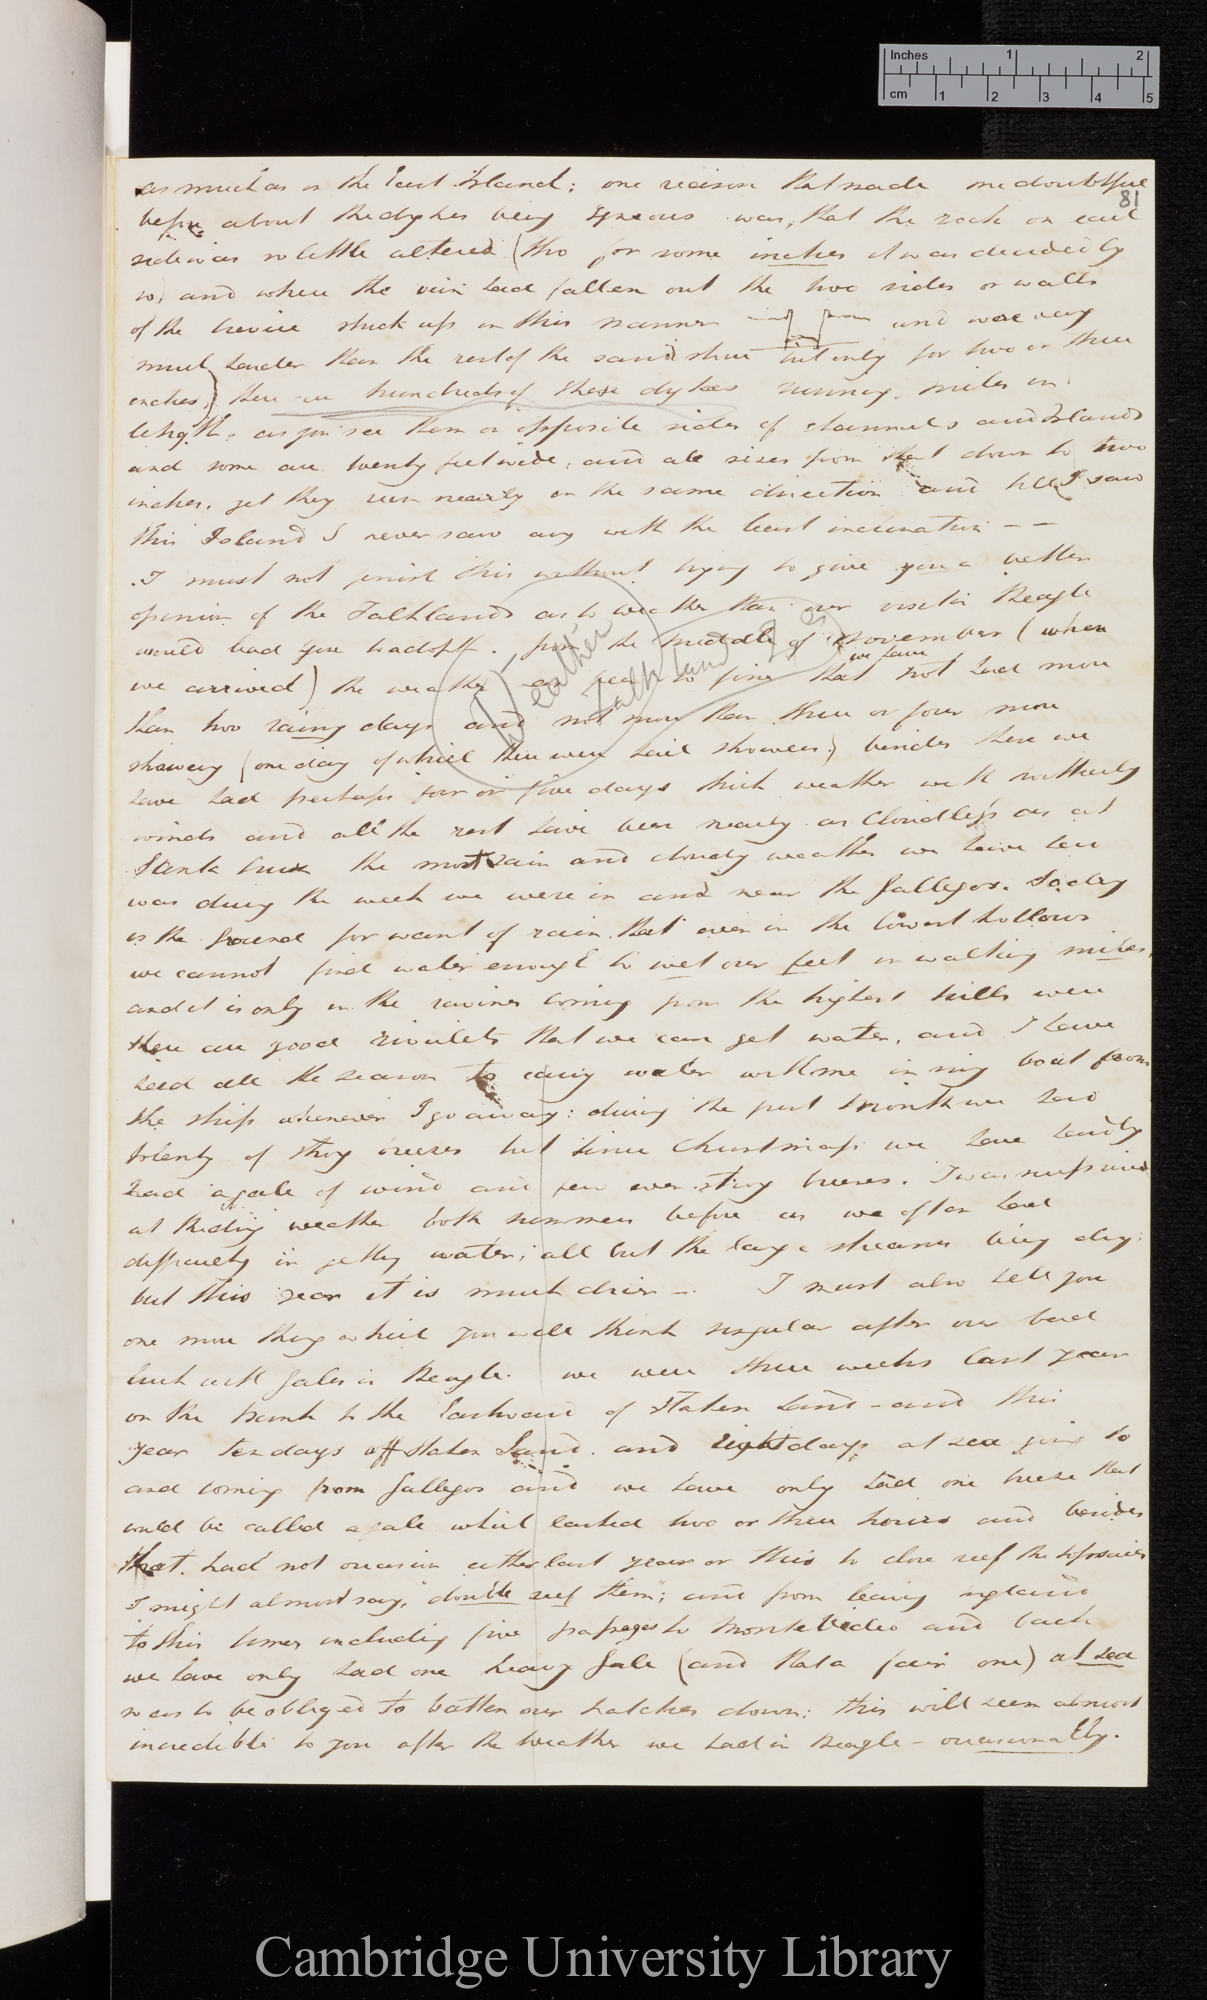 Inches 1 2
cm 1 2 3 4 5
81
as much as in the East Island; one reason that made me doubtful
before about the dykes being Igneous was, that the rock on each
side was so little altered (tho for some inches it was decidedly
so, and where the vein had fallen out the two sides or walls
of the crevice stuck up in this manner and were very
much harder than the rest of the sand stone but only for two or three
inches) there are hundreds of these dykes running miles in
length, as you see them on opposite sides of channels and Islands
and some are twenty feet wide, and all sizes from that down to two
inches, yet they run nearly in the same direction and till I saw
this Island I never saw any with the least inclination – –
I must not finish this without trying to give you a better
opinion of the Falklands as to weather than our visit in Beagle
would lead you to adopt. from the middle of November (when
we arrived) the weather was so fine that we have not had more
than two rainy days and not more than three or four more
showery (one day of which there were hail showers;) besides these we
have had perhaps four or five days thick weather with northerly
winds and all the rest have been nearly as cloudless as at
Santa Cruz the most rain and cloudy weather we have had
was during the week we were in and near the Gallegos. So dry
is the ground for want of rain that even in the lowest hollows
we cannot find water enough to wet our feet in walking miles,
and it is only in the ravines coming from the highest hills were
there are good rivulets that we can get water, and I have
had all the season to carry water with me in my boat from
the ship whenever I go away: during the first month we had
plenty of strong breezes but since Christmass we have hardly
had a gale of wind and few even strong breezes. I was surprised
at the dry weather both summers before as we often had
difficulty in getting water; all but the large streams being dry:
but this year it is much drier –. I must also tell you
one more thing which you will think singular after our bad
luck with Gales in Beagle. we were three weeks last year
on the bank to the Eastward of Staten Land – and this
year ten days off Staten Land. and eight days at sea going to
and coming from Gallegos and we have only had one breeze that
could be called a gale which lasted two or three hours and besides
that. had not occasion either last year or this to close reef the topsails
I might almost say, "double reef them"; and from leaving England
to this time including five passages to Monte Video and back
we have only had one heavy Gale (and that a fair one) at sea
so as to be obliged to batten our hatches down: this will seem almost
incredible to you after the weather we had in Beagle – occasionally.
Weather
Falkland Is
Cambridge University Library